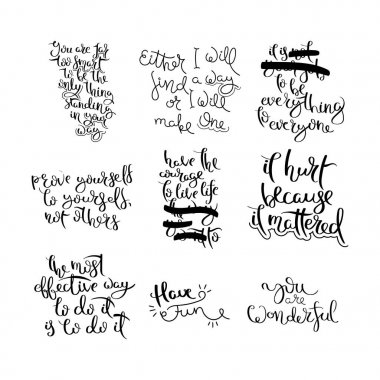 you are far
too smart
to be the
only thing
standing
in your
way
Either I will
find a way
or I will
make one
it is
to be
everything
to everyone
prove yourself
to yourself,
not others
have the
courage
to live life
to
it hurt
because
it mattered
the most
effective way
to do it
is to do it
Have
Fun
you
are
wonderful